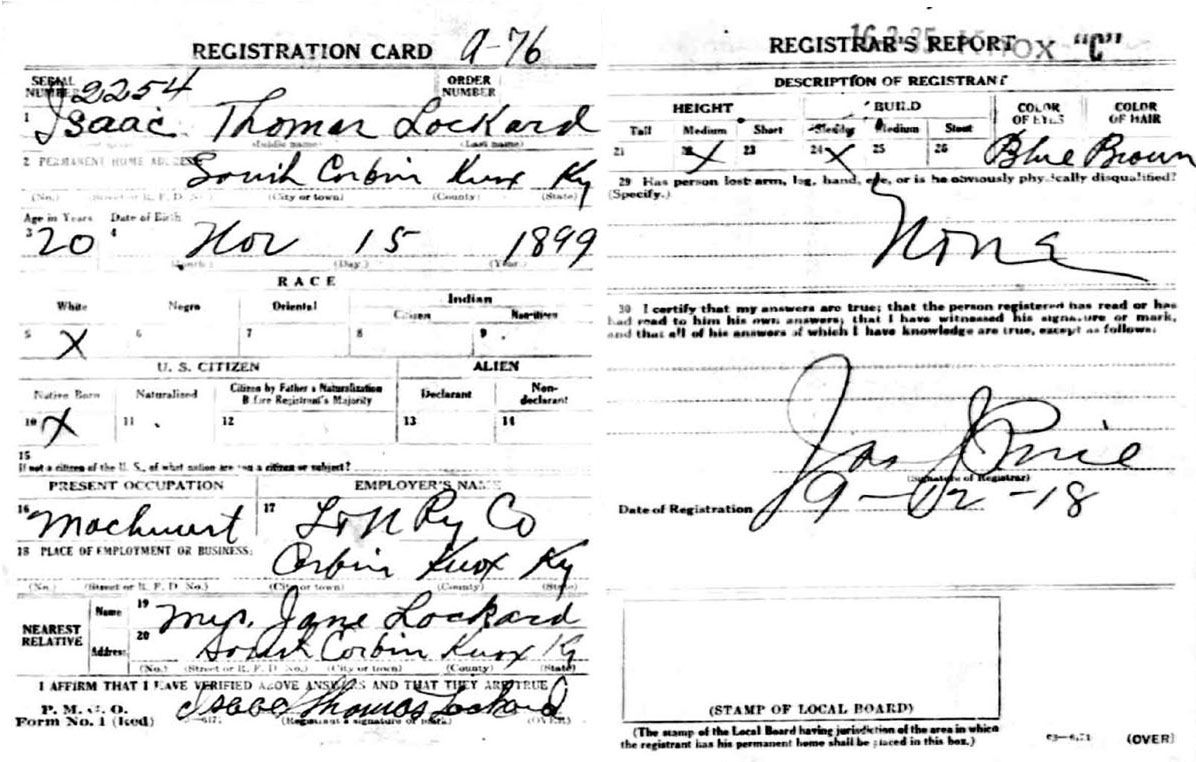 REGISTRATION CARD A-76
SERIAL NUMBER 2254 ORDER NUMBER
1 Isaac Thomas Lockard
(Middle name) (Last name)
2 PERMANENT HOME ADDRESS
South Corbin Knox Ky
(No.) (Street or R. F. D. No.) (City or town) (County) (State)
Age in Years Date of Birth
3 20 4 Nov 15 1899
(Month.) (Day.) (Year.)
RACE
White Negro Oriental Indian
Citizen Noncitizen
5 X 6 7 8 9
U. S. CITIZEN ALIEN
Native Born Naturalized Citizen by Father's Naturalization Before Registrant's Majority Declarant Non-declarant
10 X 11 12 13 14
15
If not a citizen of the U. S., of what nation are you a citizen or subject?
PRESENT OCCUPATION EMPLOYER'S NAME
16 Machinist 17 L & N Ry Co
18 PLACE OF EMPLOYMENT OR BUSINESS:
Corbin Knox Ky
(No.) (Street or R. F. D. No.) (City or town) (County) (State)
NEAREST RELATIVE Name 19 Mrs. Jane Lockard
Address 20 South Corbin Knox Ky
(No.) (Street or R. F. D. No.) (City or town) (County) (State)
I AFFIRM THAT I HAVE VERIFIED ABOVE ANSWERS AND THAT THEY ARE TRUE
P. M. G. O.
Form No. 1 (Red) Isaac Thomas Lockard
(Registrant's signature or mark) (OVER)
REGISTRAR'S REPORT "C"
DESCRIPTION OF REGISTRANT
HEIGHT BUILD COLOR OF EYES COLOR OF HAIR
Tall Medium Short Slender Medium Stout
21 22 X 23 24 X 25 26 Blue Brown
29 Has person lost arm, leg, hand, eye, or is he obviously physically disqualified?
(Specify.)
None
30 I certify that my answers are true; that the person registered has read or has
had read to him his own answers; that I have witnessed his signature or mark,
and that all of his answers of which I have knowledge are true, except as follows:
Jas J Price
(Signature of Registrar)
Date of Registration 9-12-18
(STAMP OF LOCAL BOARD)
(The stamp of the Local Board having jurisdiction of the area in which
the registrant has his permanent home shall be placed in this box.)
(OVER)